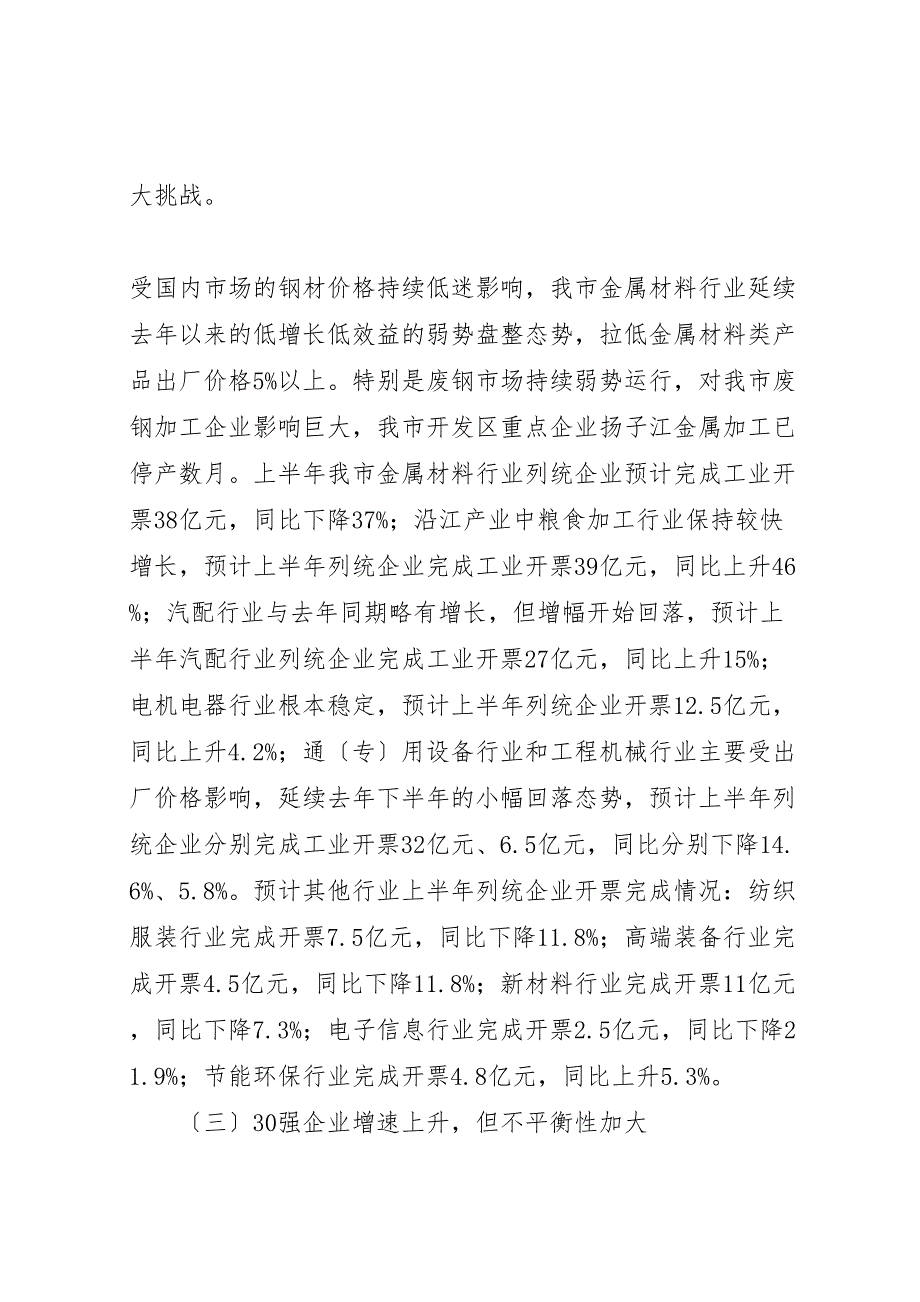 大挑战。
受国内市场的钢材价格持续低迷影响，我市金属材料行业延续
去年以来的低增长低效益的弱势盘整态势，拉低金属材料类产
品出厂价格5%以上。特别是废钢市场持续弱势运行，对我市废
钢加工企业影响巨大，我市开发区重点企业扬子江金属加工已
停产数月。上半年我市金属材料行业列统企业预计完成工业开
票38亿元，同比下降37%；沿江产业中粮食加工行业保持较快
增长，预计上半年列统企业完成工业开票39亿元，同比上升46
%；汽配行业与去年同期略有增长，但增幅开始回落，预计上
半年汽配行业列统企业完成工业开票27亿元，同比上升15%；
电机电器行业根本稳定，预计上半年列统企业开票12.5亿元，
同比上升4.2%；通〔专）用设备行业和工程机械行业主要受出
厂价格影响，延续去年下半年的小幅回落态势，预计上半年列
统企业分别完成工业开票32亿元、6.5亿元，同比分别下降14.
6%、5.8%。预计其他行业上半年列统企业开票完成情况：纺织
服装行业完成开票7.5亿元，同比下降11.8%；高端装备行业完
成开票4.5亿元，同比下降11.8%；新材料行业完成开票11亿元
，同比下降7.3%；电子信息行业完成开票2.5亿元，同比下降2
1.9%；节能环保行业完成开票4.8亿元，同比上升5.3%。
〔三〕30强企业增速上升，但不平衡性加大